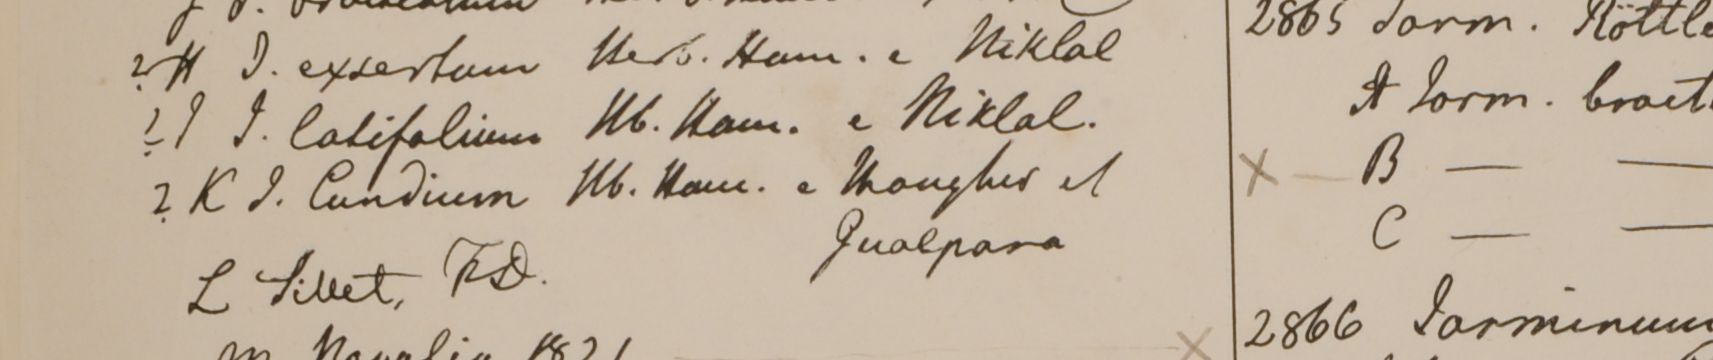 ? H J. exsertum Herb. Ham. e Niklal
? I J. latifolium Hb. Ham. e Niklal.
? K J. Cundium Hb. Ham. e Mongher et
Gualpara
L Sillet, F.D.
M Napalia 1821
2865 Jasm. Röttle
A Jasm. bract
X B — —
C — —
X 2866 Jasminum